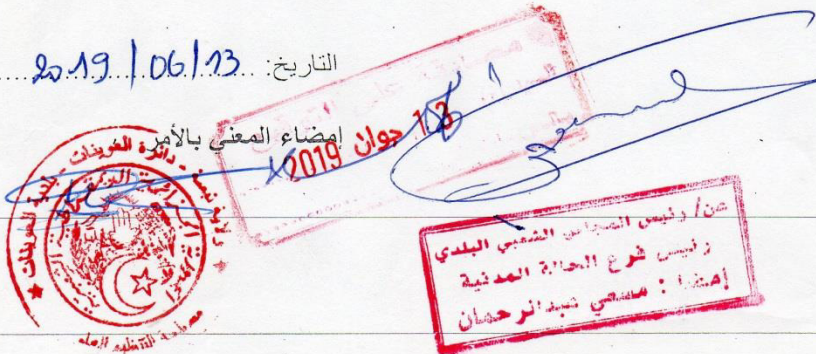 التاريخ: 2019/06/13
إمضاء المعني بالأمر
13 جوان 2019
عن/ رئيس المجلس الشعبي البلدي
رئيس فرع الحالة المدنية
إمضاء : مسعي عبدالرحمان
دائرة العوينات - بلدية العوينات